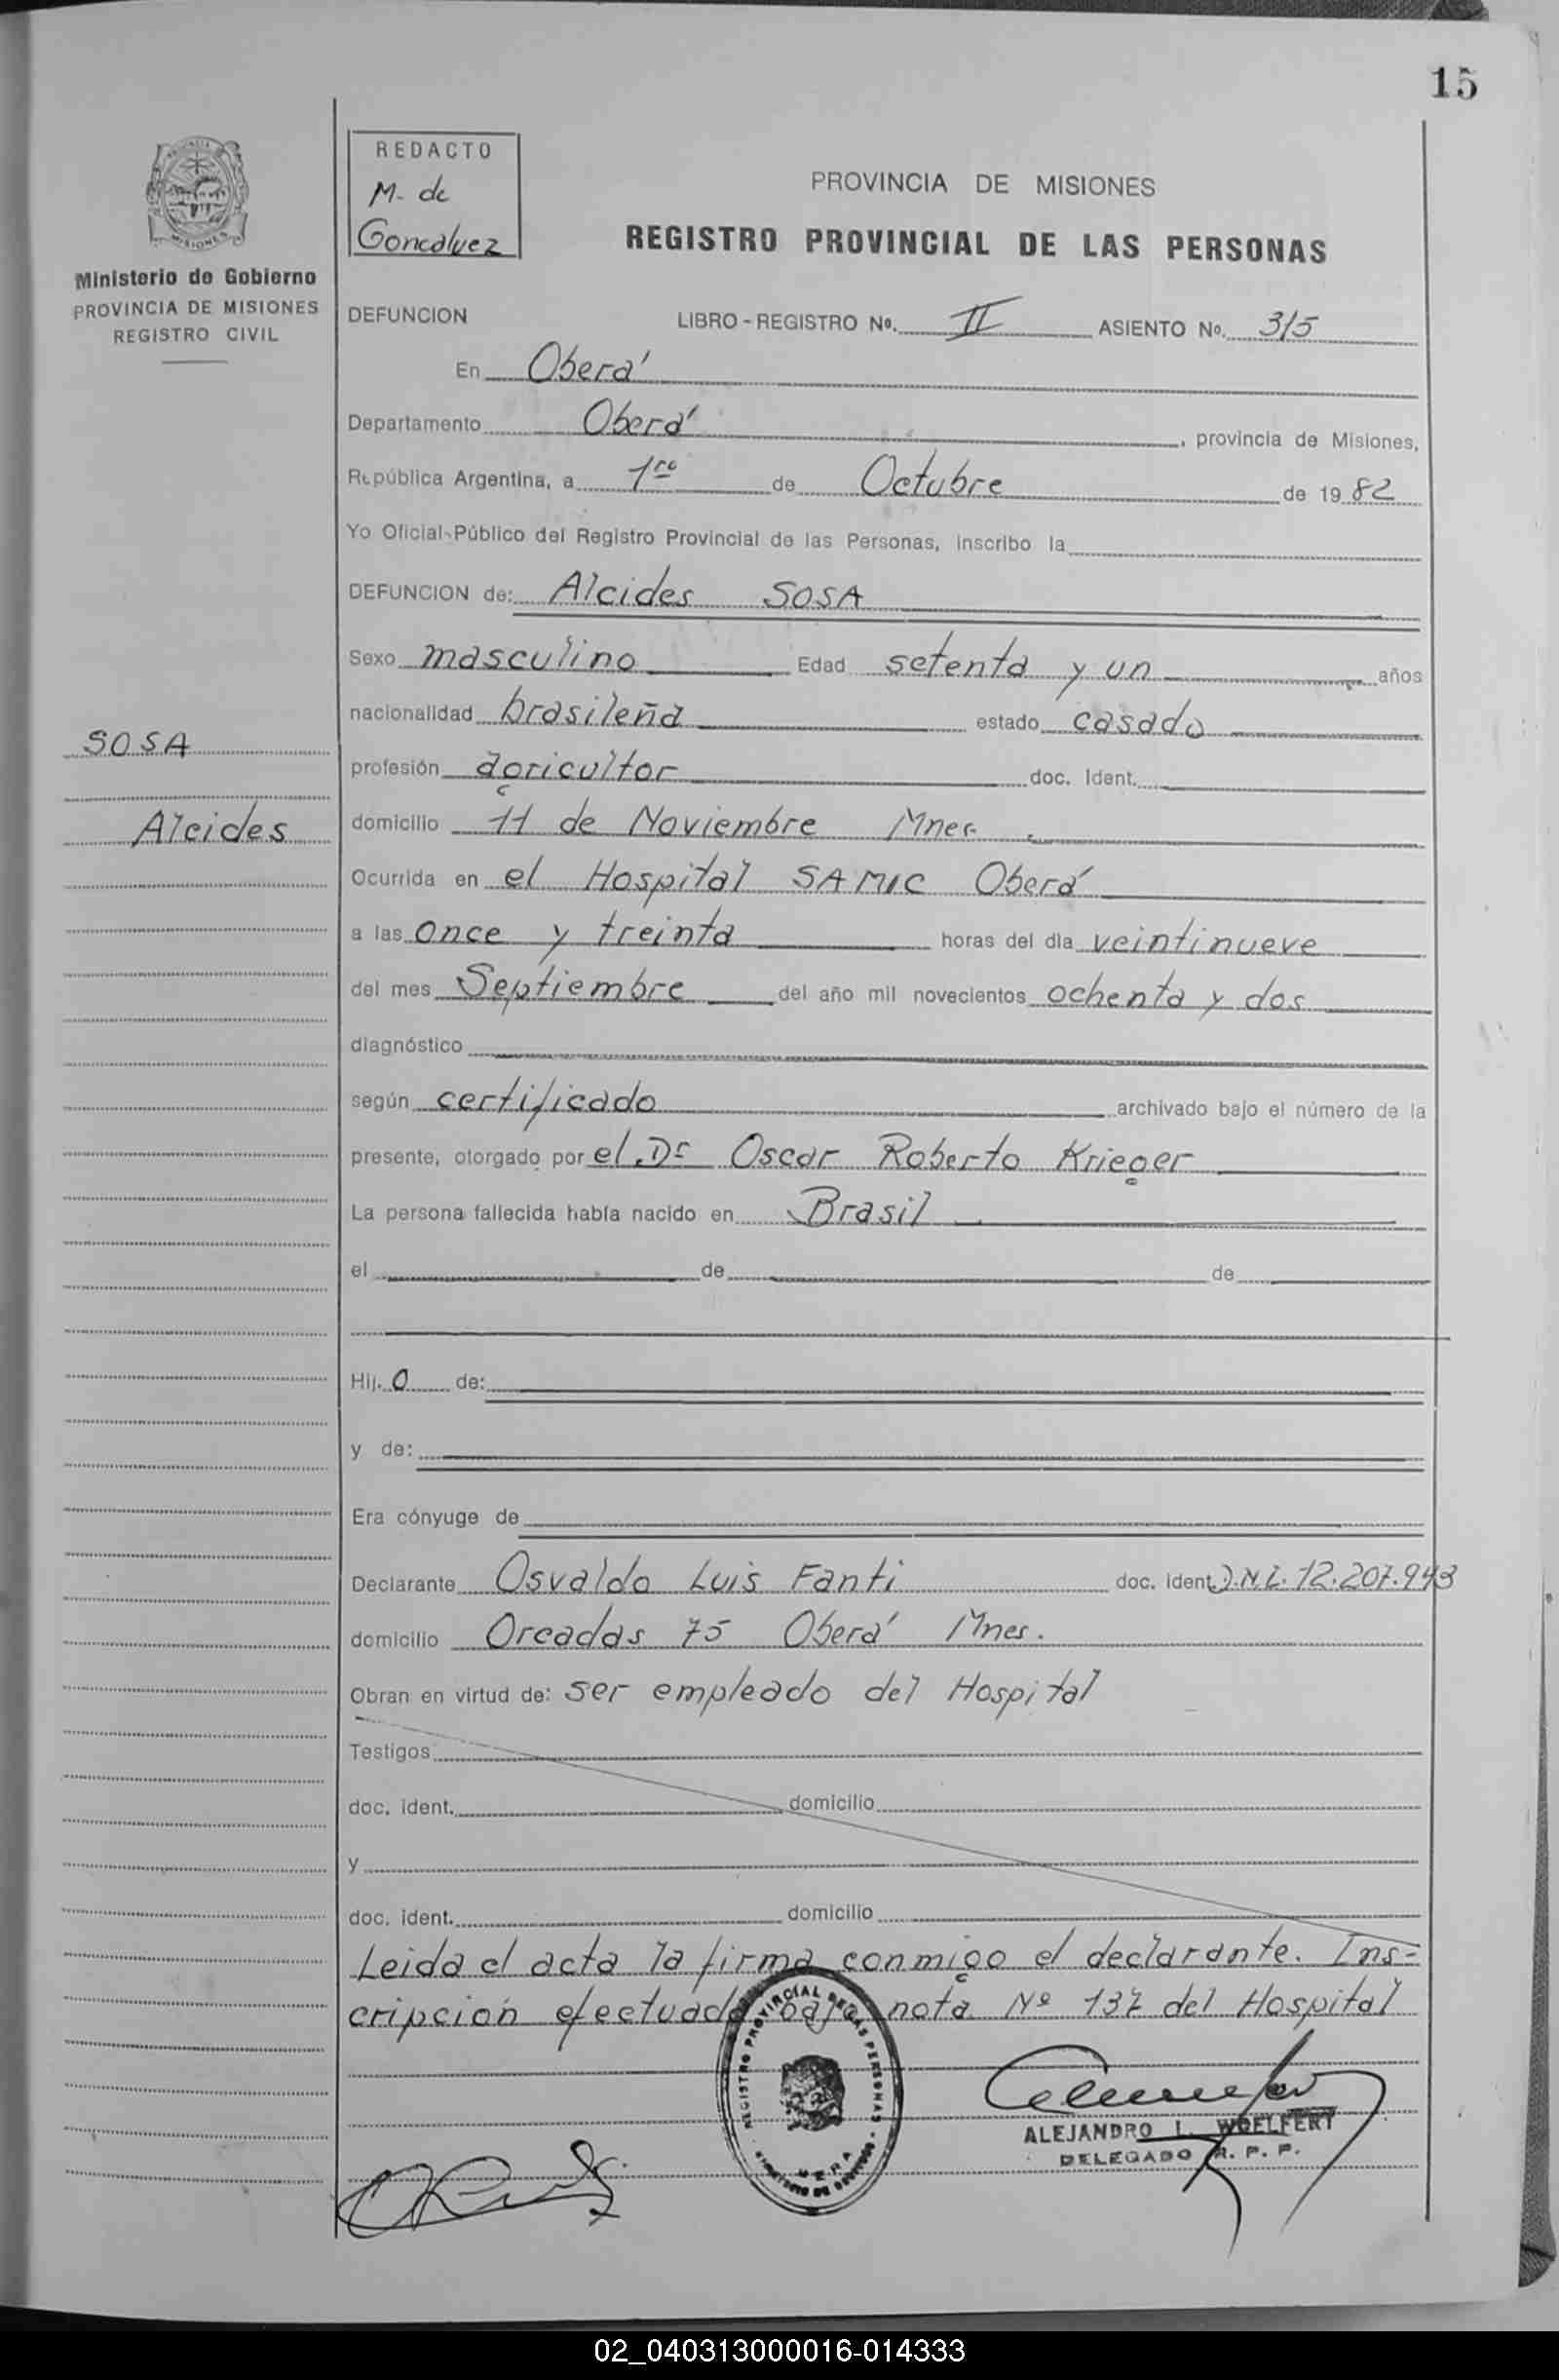 15
REDACTO
M. de
Goncalvez
PROVINCIA DE MISIONES
REGISTRO PROVINCIAL DE LAS PERSONAS
Ministerio de Gobierno
PROVINCIA DE MISIONES
REGISTRO CIVIL
DEFUNCION LIBRO-REGISTRO Nº. II ASIENTO Nº. 315
En Oberá
Departamento Oberá, provincia de Misiones,
República Argentina, a 1ro de Octubre de 1982
Yo Oficial Público del Registro Provincial de las Personas, inscribo la
DEFUNCION de: Alcides SOSA
Sexo masculino Edad setenta y un años
nacionalidad brasileña estado casado
SOSA
profesión agricultor doc. Ident.
Alcides
domicilio 11 de Noviembre Mnes.
Ocurrida en el Hospital SAMIC Oberá
a las once y treinta horas del día veintinueve
del mes Septiembre del año mil novecientos ochenta y dos
diagnóstico
según certificado archivado bajo el número de la
presente, otorgado por el Dr Oscar Roberto Krieger
La persona fallecida había nacido en Brasil
el de de
Hij. o de:
y de:
Era cónyuge de
Declarante Osvaldo Luis Fanti doc. ident. D.N.I. 12.207.943
domicilio Orcadas 75 Oberá Mnes.
Obran en virtud de: ser empleado del Hospital
Testigos
doc. ident. domicilio
y
doc. ident. domicilio
Leida el acta la firma conmigo el declarante. Ins-
cripción efectuada bajo nota Nº 137 del Hospital
REGISTRO PROVINCIAL DE LAS PERSONAS
ALEJANDRO L. WOELFERT
DELEGADO R. P. P.
02_040313000016-014333